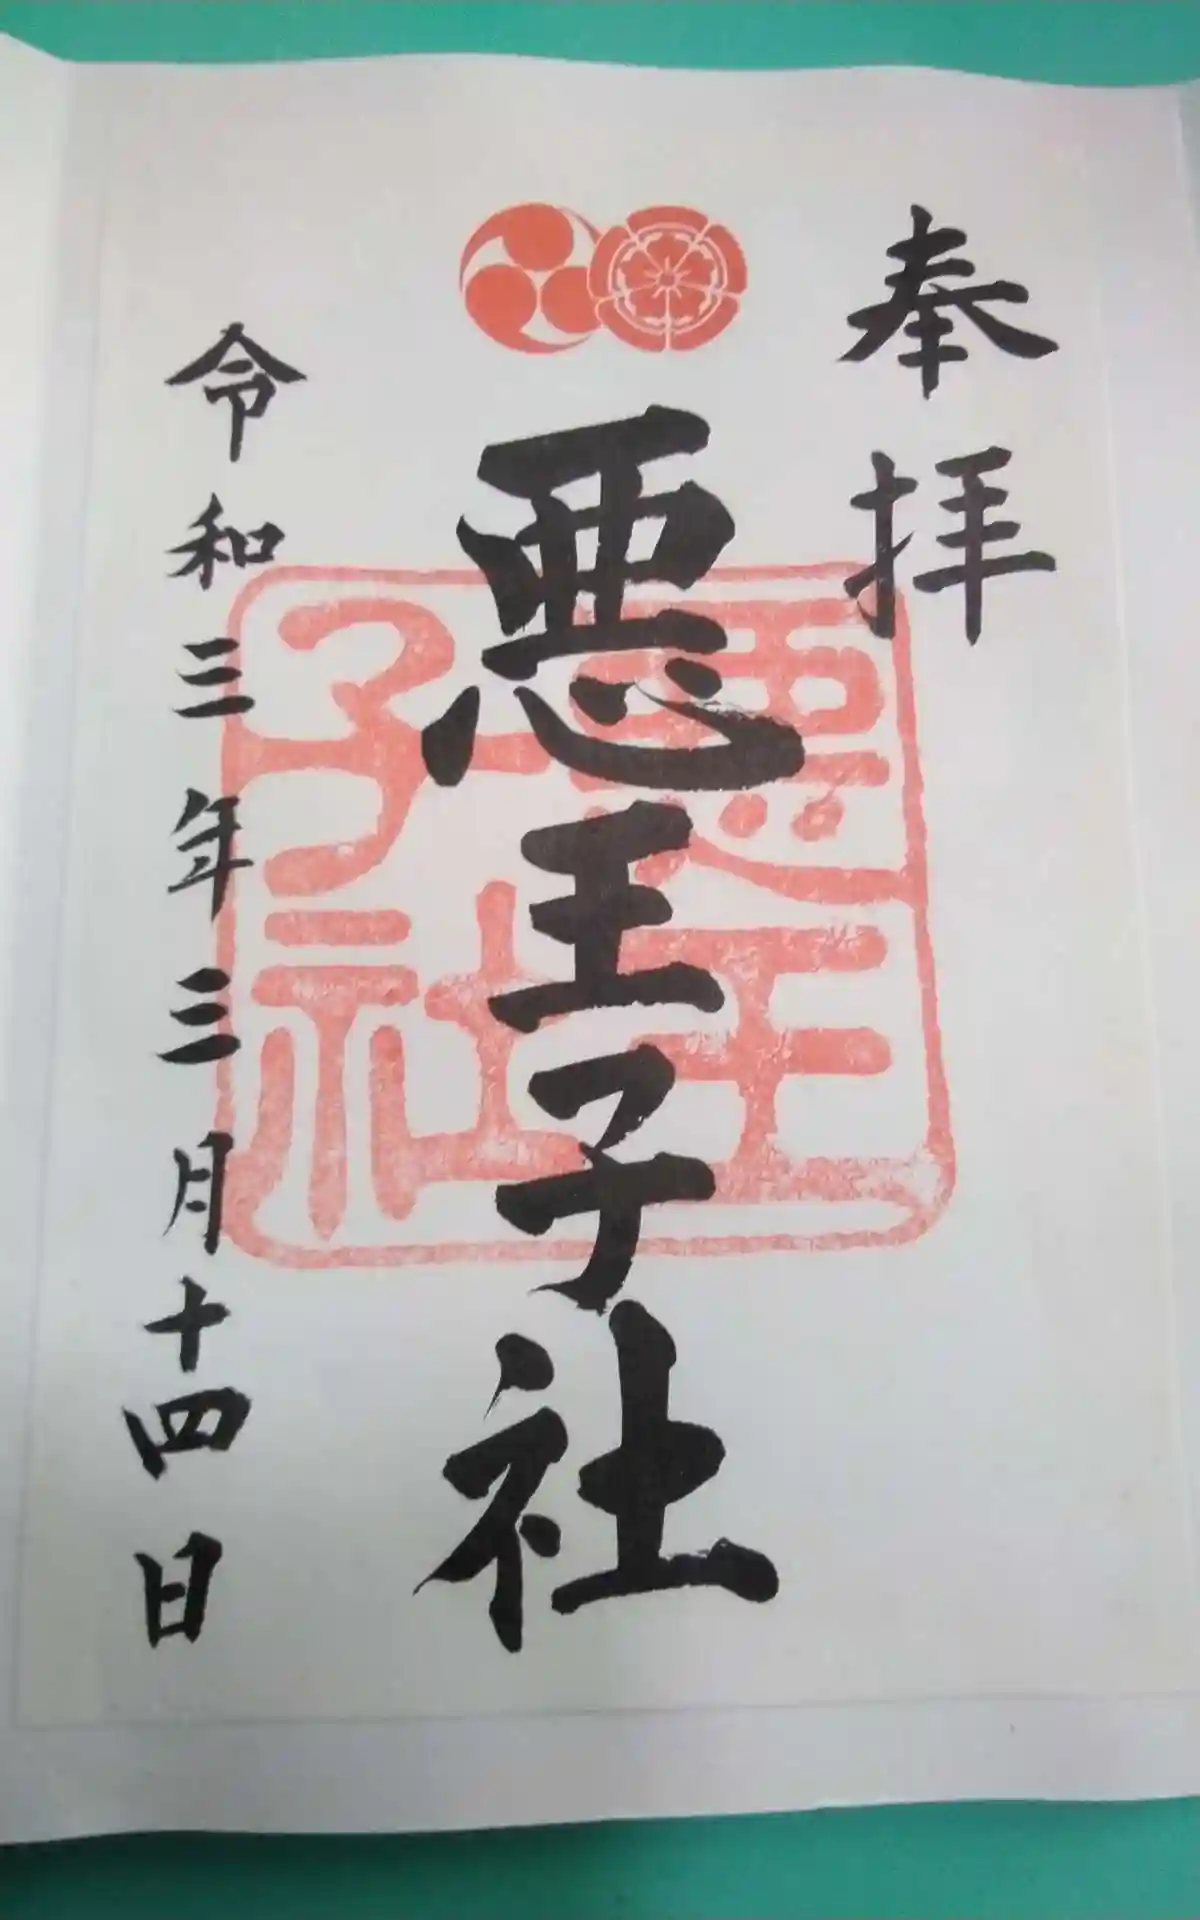 奉拝
悪王子社
悪王
子社
令和三年三月十四日